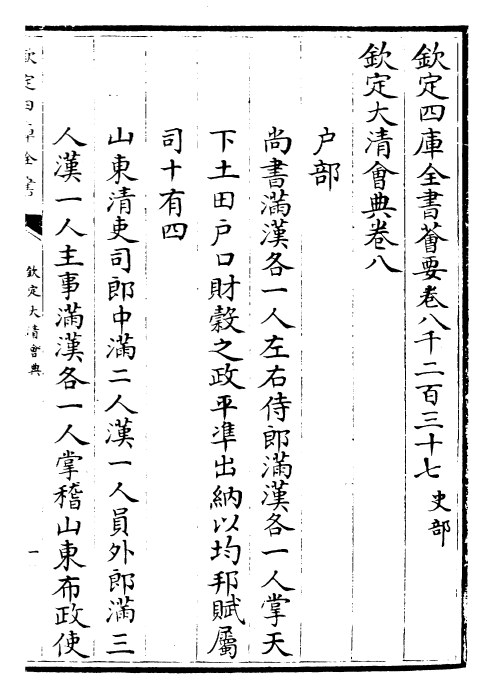 欽定四庫全書薈要卷八千二百三十七 史部
欽定大清會典卷八
户部
尚書滿漢各一人左右侍郎滿漢各一人掌天
下土田户口財榖之政平準出納以均邦賦屬
司十有四
山東清吏司郎中滿二人漢一人員外郎滿三
人漢一人主事滿漢各一人掌稽山東布政使
欽定四庫全書
欽定大清會典
一